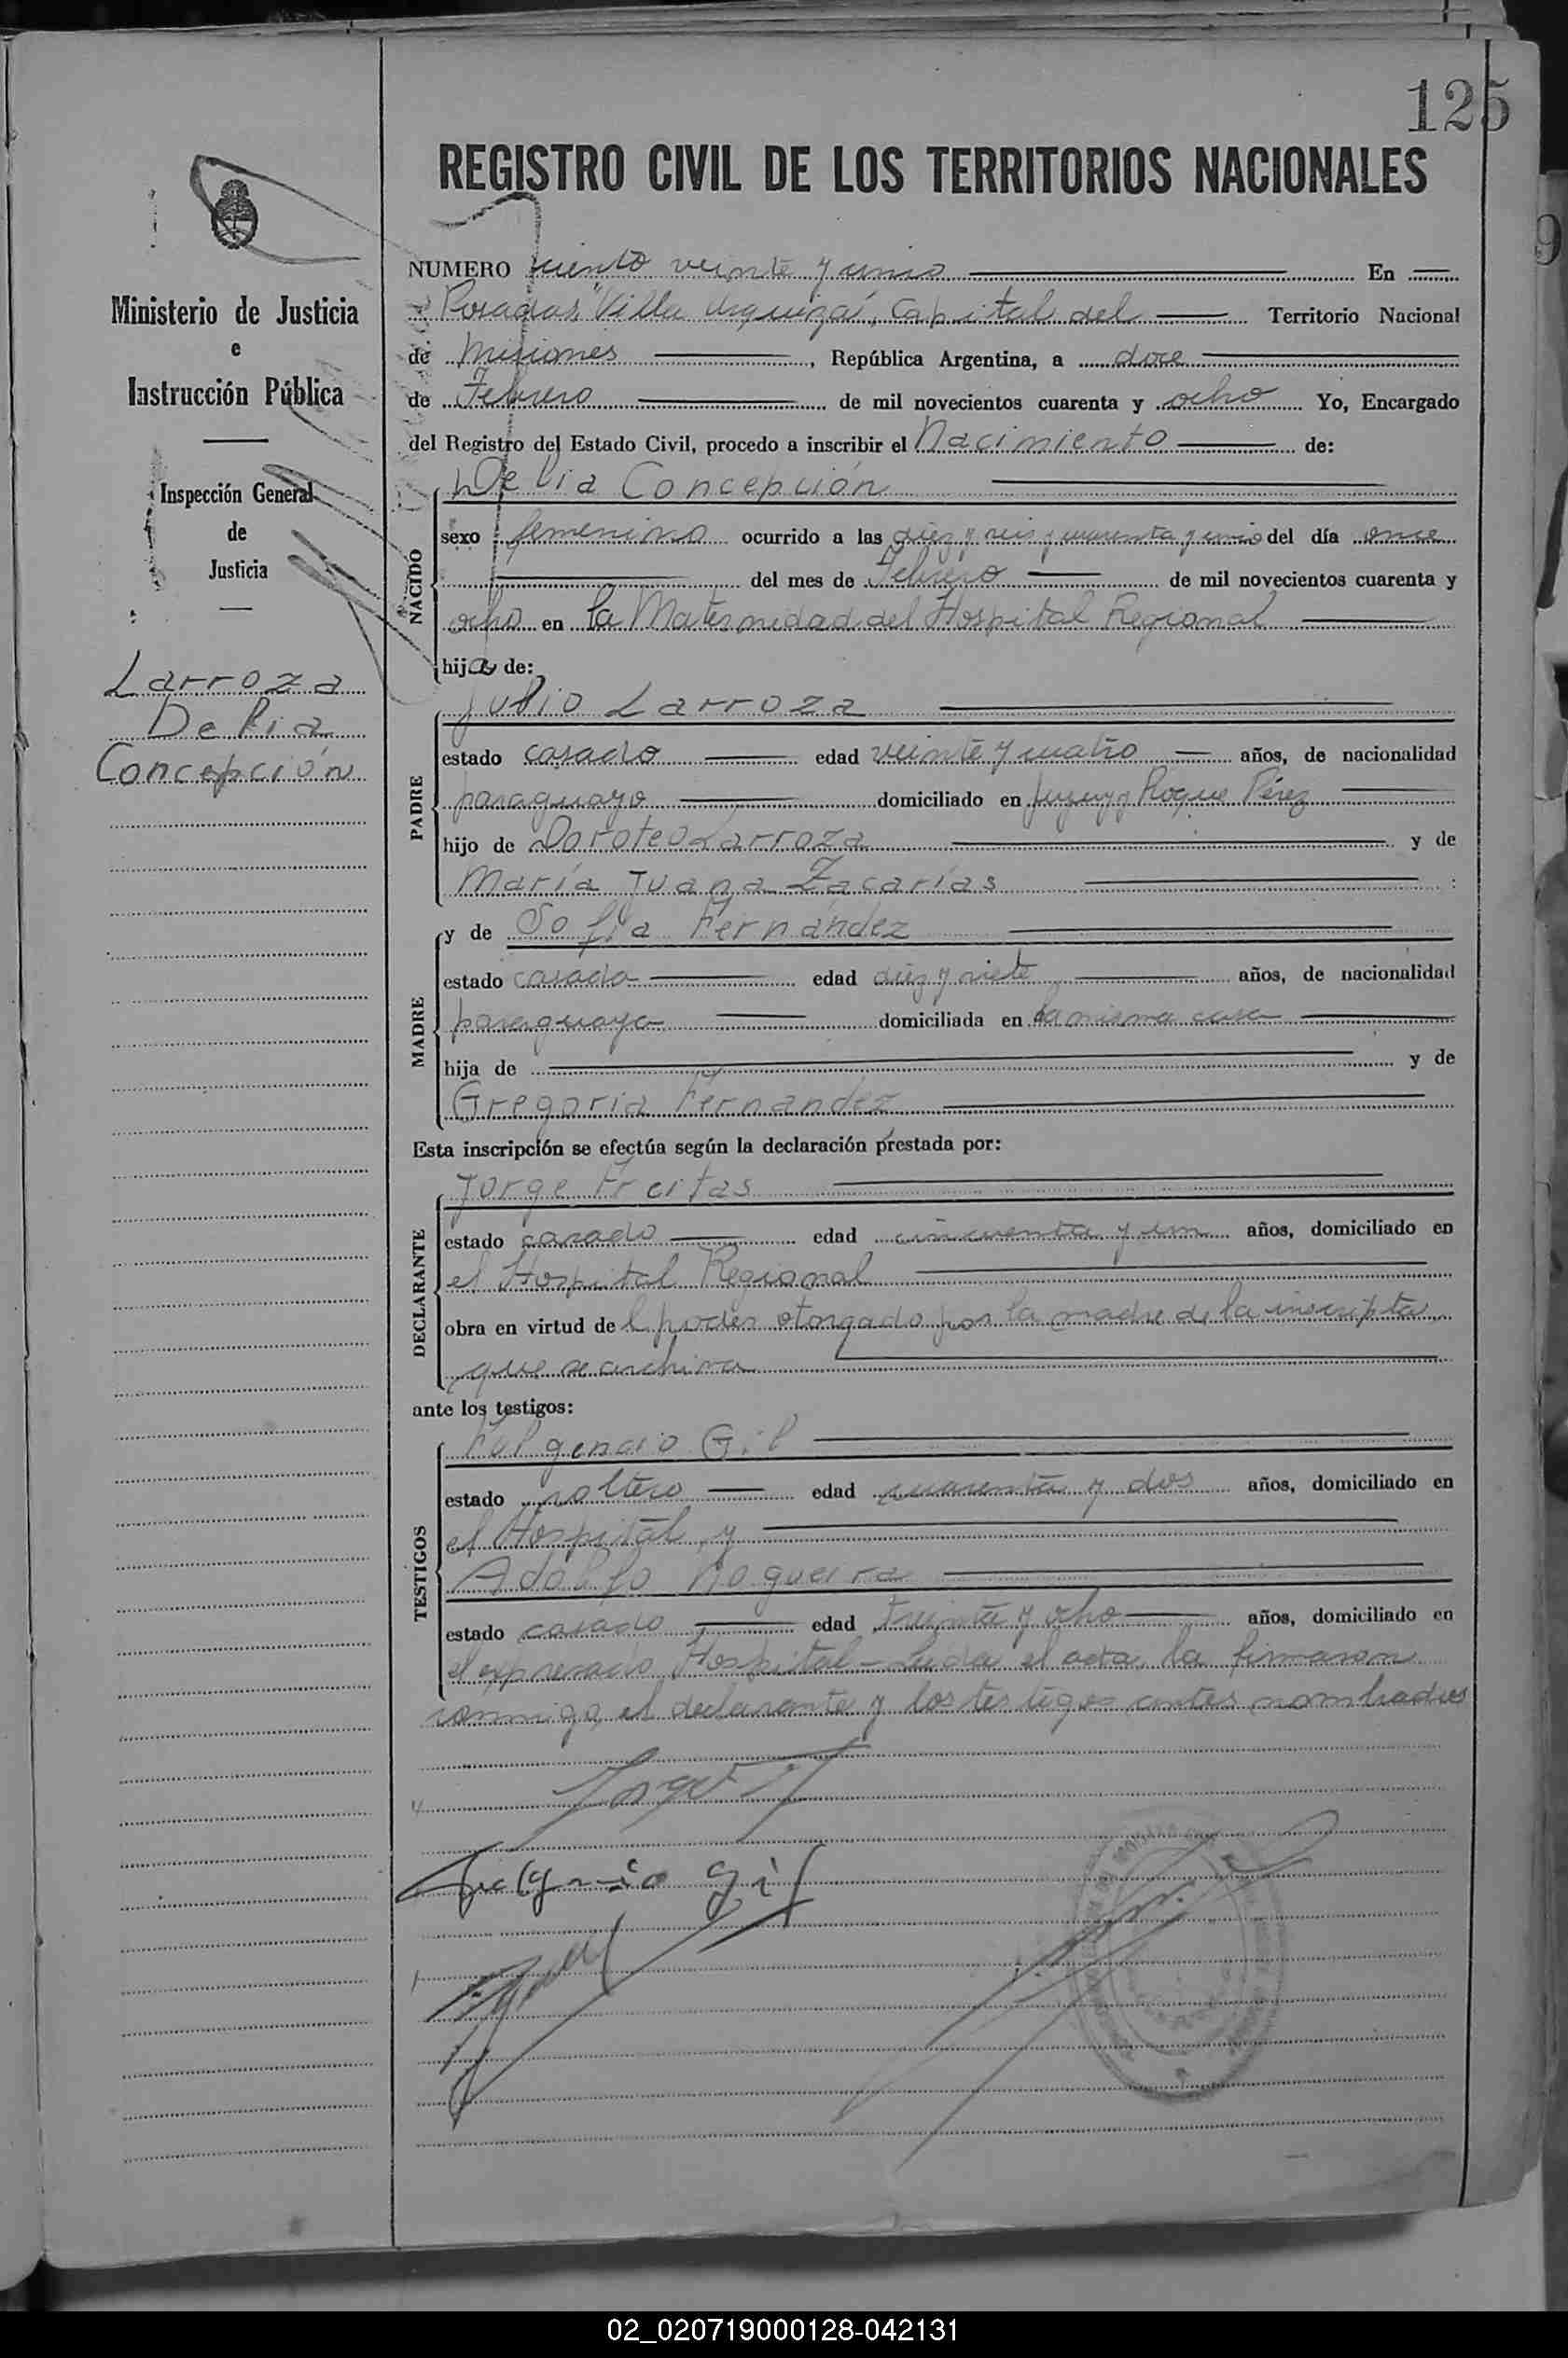 125
REGISTRO CIVIL DE LOS TERRITORIOS NACIONALES
Ministerio de Justicia
e
Instrucción Pública
Inspección General
de
Justicia
Larroza
Delia
Concepción
NUMERO ciento veinte y uno En
Posadas "Villa Urquiza", Capital del Territorio Nacional
de Misiones, República Argentina, a doce
de Febrero de mil novecientos cuarenta y ocho Yo, Encargado
del Registro del Estado Civil, procedo a inscribir el Nacimiento de:
NACIDO
Delia Concepción
sexo femenino ocurrido a las diez y seis y cuarenta y cinco del día once
del mes de Febrero de mil novecientos cuarenta y
ocho en la Maternidad del Hospital Regional
hija de:
PADRE
Julio Larroza
estado casado edad veinte y cuatro años, de nacionalidad
paraguayo domiciliado en Jujuy y Roque Pérez
hijo de Doroteo Larroza y de
María Juana Zacarías
MADRE
y de Sofía Fernández
estado casada edad diez y siete años, de nacionalidad
paraguaya domiciliada en la misma casa
hija de y de
Gregoria Fernández
Esta inscripción se efectúa según la declaración prestada por:
DECLARANTE
Jorge Freitas
estado casado edad cincuenta y un años, domiciliado en
el Hospital Regional
obra en virtud del poder otorgado por la madre de la inscripta
que se archiva
ante los testigos:
TESTIGOS
Fulgencio Gil
estado soltero edad cuarenta y dos años, domiciliado en
el Hospital y
Adolfo Nogueira
estado casado edad treinta y ocho años, domiciliado en
el expresado Hospital - Leida el acta, la firmaron
conmigo, el declarante y los testigos antes nombrados
Fulgencio Gil
02_020719000128-042131